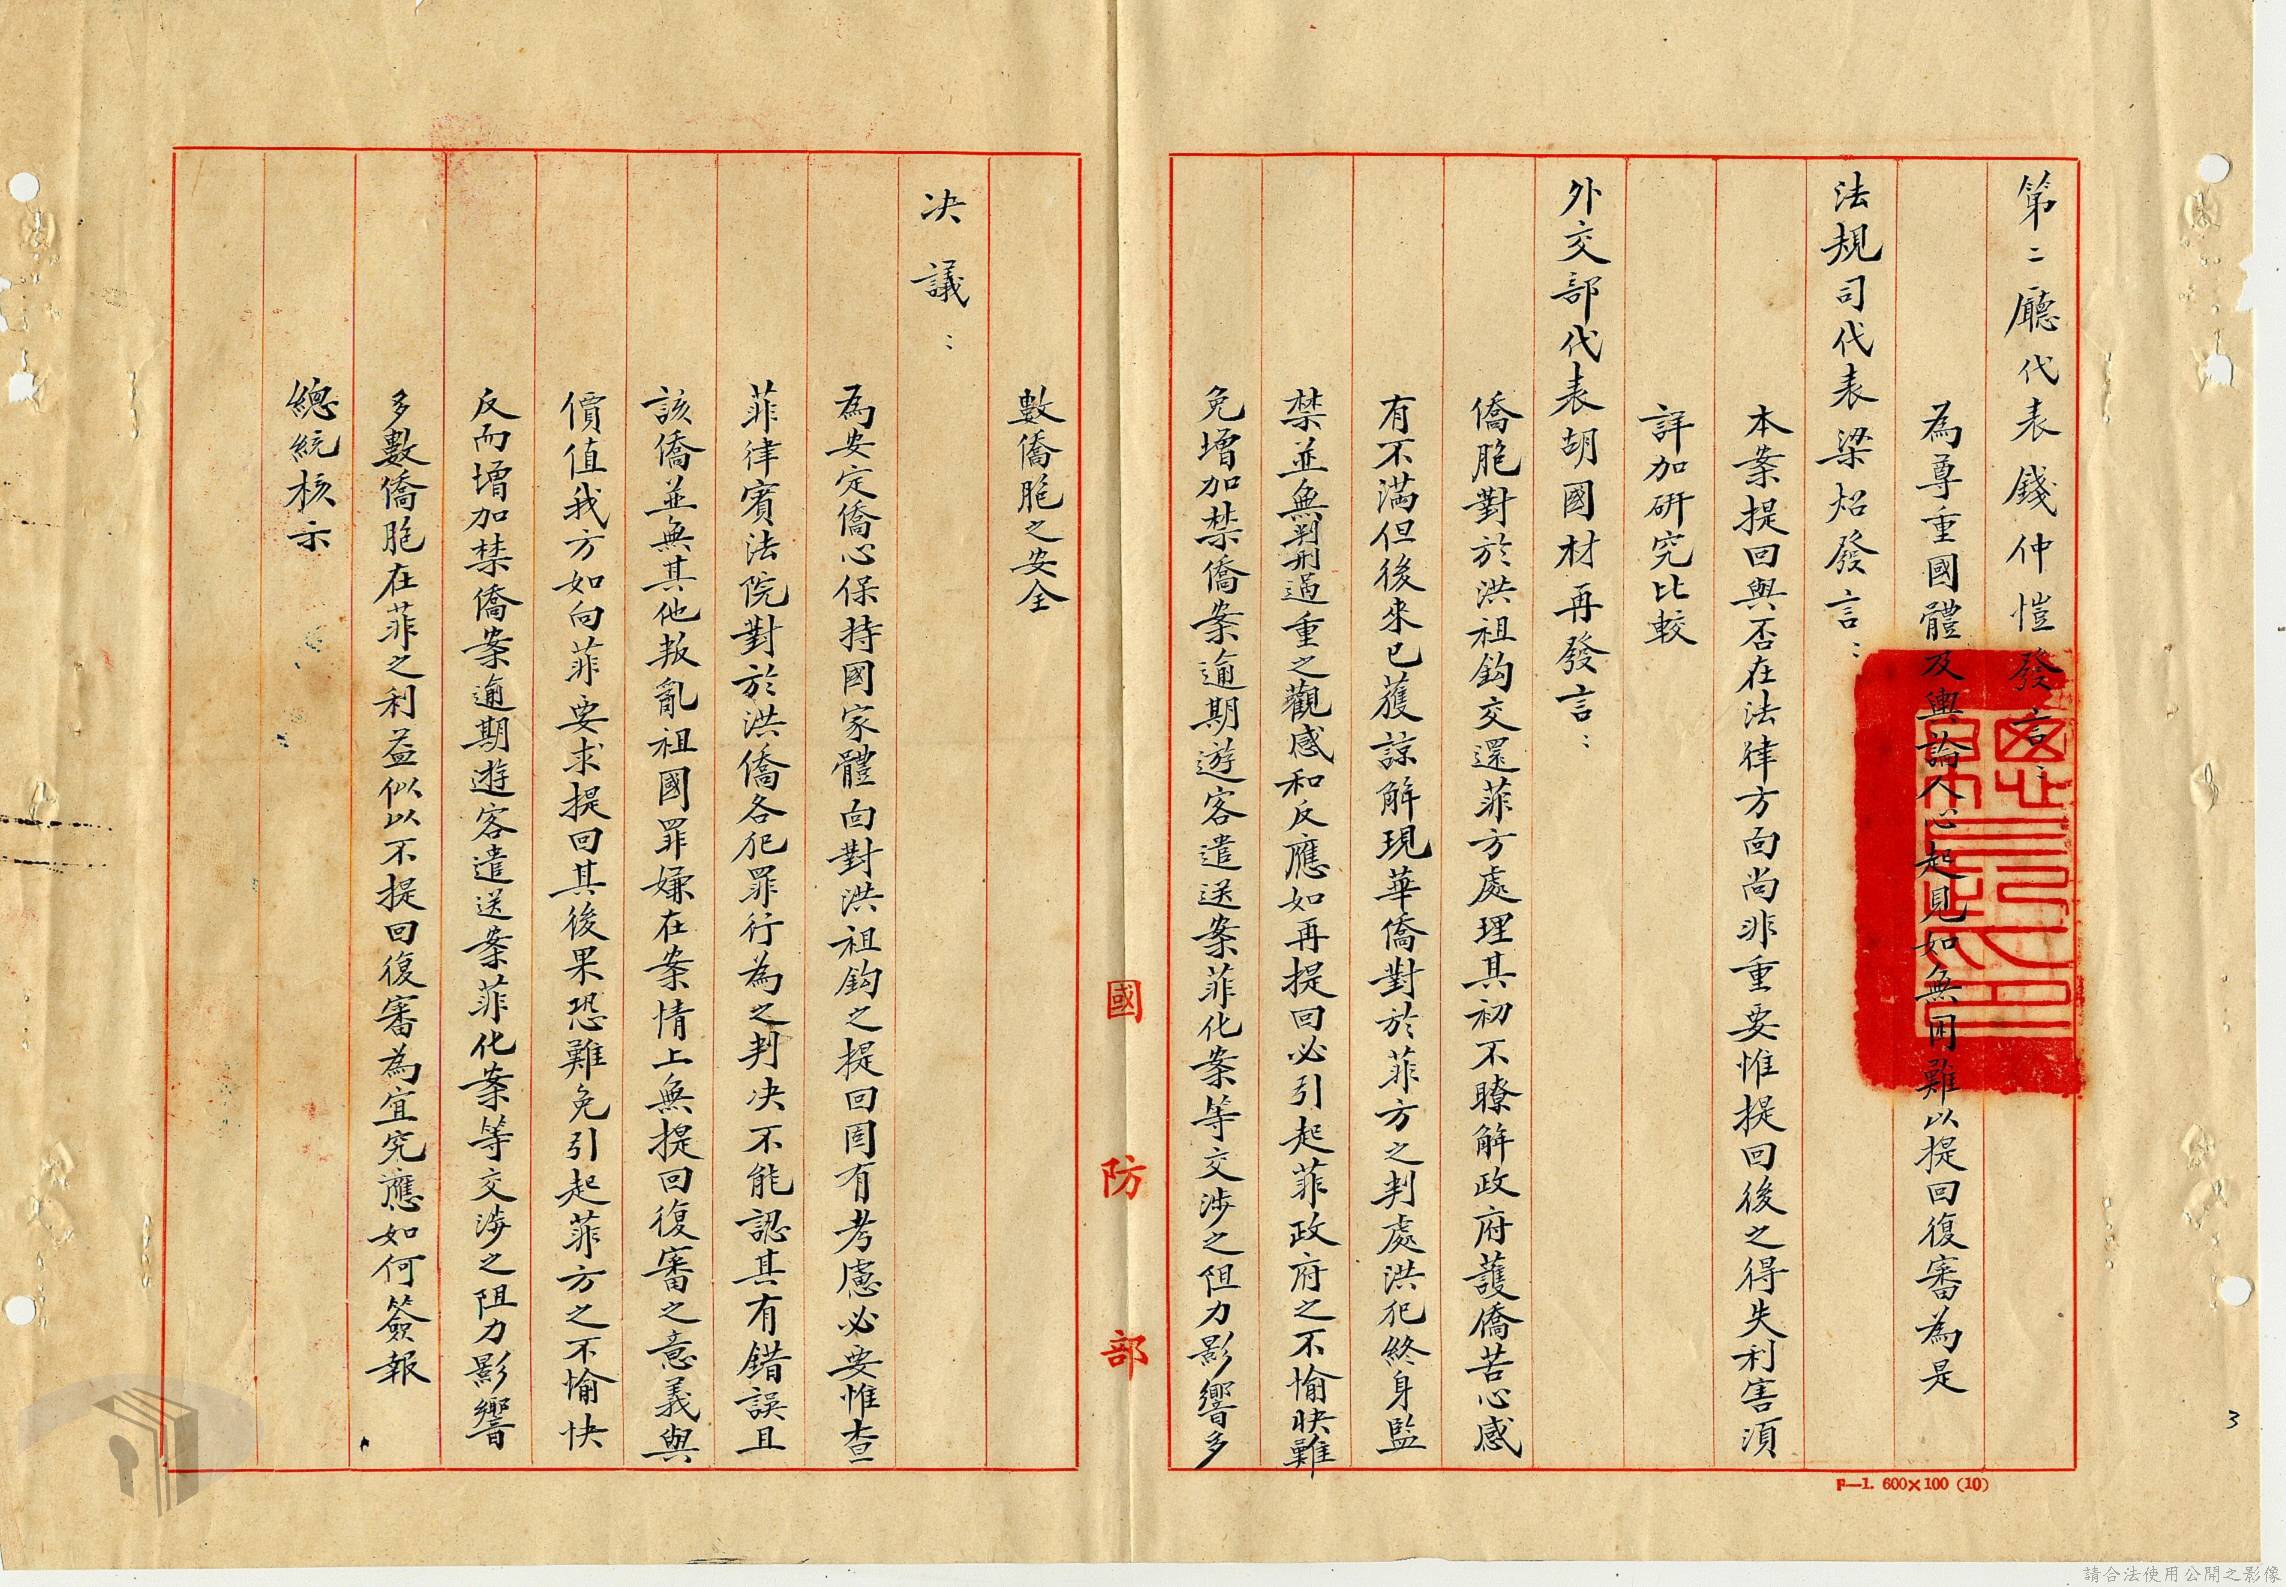 第二廳代表錢仲愷發言：
為尊重國體及輿論人心起見如無困難以提回復審為是
法規司代表梁炤發言：
本案提回與否在法律方面尚非重要惟提回後之得失利害須
詳加研究比較
外交部代表胡國材再發言：
僑胞對於洪祖鈎交還菲方處理其初不瞭解政府護僑苦心感
有不滿但後來已獲諒解現華僑對於菲方之判處洪犯終身監
禁並無判刑過重之觀感和反應如再提回必引起菲政府之不愉快難
免增加禁僑案逾期遊客遣送案菲化案等交涉之阻力影響多
國防部
數僑胞之安全
決議：
為安定僑心保持國家體面對洪祖鈎之提回固有考慮必要惟查
菲律賓法院對於洪僑各犯罪行為之判決不能認其有錯誤且
該僑並無其他叛亂祖國罪嫌在案情上無提回復審之意義與
價值我方如向菲要求提回其後果恐難免引起菲方之不愉快
反而增加禁僑案逾期遊客遣送案菲化案等交涉之阻力影響
多數僑胞在菲之利益似以不提回復審為宜究應如何簽報
總統核示
3
F—1. 600×100 (10)
請合法使用公開之影像